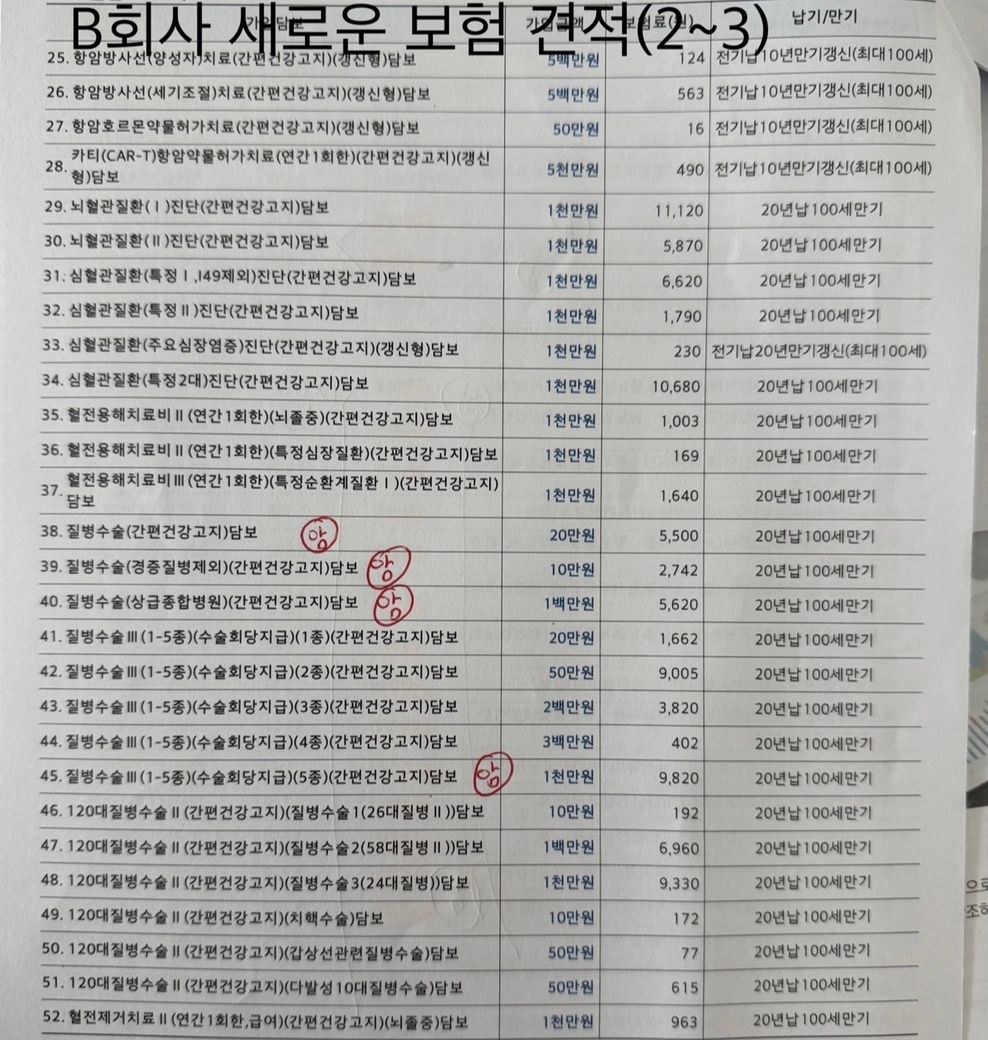 B회사 새로운 보험 견적(2~3)
가입담보 가입금액 보험료(원) 납기/만기
25. 항암방사선(양성자)치료(간편건강고지)(갱신형)담보 5백만원 124 전기납10년만기갱신(최대100세)
26. 항암방사선(세기조절)치료(간편건강고지)(갱신형)담보 5백만원 563 전기납10년만기갱신(최대100세)
27. 항암호르몬약물허가치료(간편건강고지)(갱신형)담보 50만원 16 전기납10년만기갱신(최대100세)
28. 카티(CAR-T)항암약물허가치료(연간1회한)(간편건강고지)(갱신
형)담보 5천만원 490 전기납10년만기갱신(최대100세)
29. 뇌혈관질환(Ⅰ)진단(간편건강고지)담보 1천만원 11,120 20년납100세만기
30. 뇌혈관질환(Ⅱ)진단(간편건강고지)담보 1천만원 5,870 20년납100세만기
31. 심혈관질환(특정Ⅰ,I49제외)진단(간편건강고지)담보 1천만원 6,620 20년납100세만기
32. 심혈관질환(특정Ⅱ)진단(간편건강고지)담보 1천만원 1,790 20년납100세만기
33. 심혈관질환(주요심장염증)진단(간편건강고지)(갱신형)담보 1천만원 230 전기납20년만기갱신(최대100세)
34. 심혈관질환(특정2대)진단(간편건강고지)담보 1천만원 10,680 20년납100세만기
35. 혈전용해치료비Ⅱ(연간1회한)(뇌졸중)(간편건강고지)담보 1천만원 1,003 20년납100세만기
36. 혈전용해치료비Ⅱ(연간1회한)(특정심장질환)(간편건강고지)담보 1천만원 169 20년납100세만기
37. 혈전용해치료비Ⅲ(연간1회한)(특정순환계질환Ⅰ)(간편건강고지)
담보 1천만원 1,640 20년납100세만기
38. 질병수술(간편건강고지)담보 암 20만원 5,500 20년납100세만기
39. 질병수술(경증질병제외)(간편건강고지)담보 암 10만원 2,742 20년납100세만기
40. 질병수술(상급종합병원)(간편건강고지)담보 암 1백만원 5,620 20년납100세만기
41. 질병수술Ⅲ(1-5종)(수술회당지급)(1종)(간편건강고지)담보 20만원 1,662 20년납100세만기
42. 질병수술Ⅲ(1-5종)(수술회당지급)(2종)(간편건강고지)담보 50만원 9,005 20년납100세만기
43. 질병수술Ⅲ(1-5종)(수술회당지급)(3종)(간편건강고지)담보 2백만원 3,820 20년납100세만기
44. 질병수술Ⅲ(1-5종)(수술회당지급)(4종)(간편건강고지)담보 3백만원 402 20년납100세만기
45. 질병수술Ⅲ(1-5종)(수술회당지급)(5종)(간편건강고지)담보 암 1천만원 9,820 20년납100세만기
46. 120대질병수술Ⅱ(간편건강고지)(질병수술1(26대질병Ⅱ))담보 10만원 192 20년납100세만기
47. 120대질병수술Ⅱ(간편건강고지)(질병수술2(58대질병Ⅱ))담보 1백만원 6,960 20년납100세만기
48. 120대질병수술Ⅱ(간편건강고지)(질병수술3(24대질병))담보 1천만원 9,330 20년납100세만기
49. 120대질병수술Ⅱ(간편건강고지)(치핵수술)담보 10만원 172 20년납100세만기
50. 120대질병수술Ⅱ(간편건강고지)(갑상선관련질병수술)담보 50만원 77 20년납100세만기
51. 120대질병수술Ⅱ(간편건강고지)(다발성10대질병수술)담보 50만원 615 20년납100세만기
52. 혈전제거치료Ⅱ(연간1회한,급여)(간편건강고지)(뇌졸중)담보 1천만원 963 20년납100세만기
으로